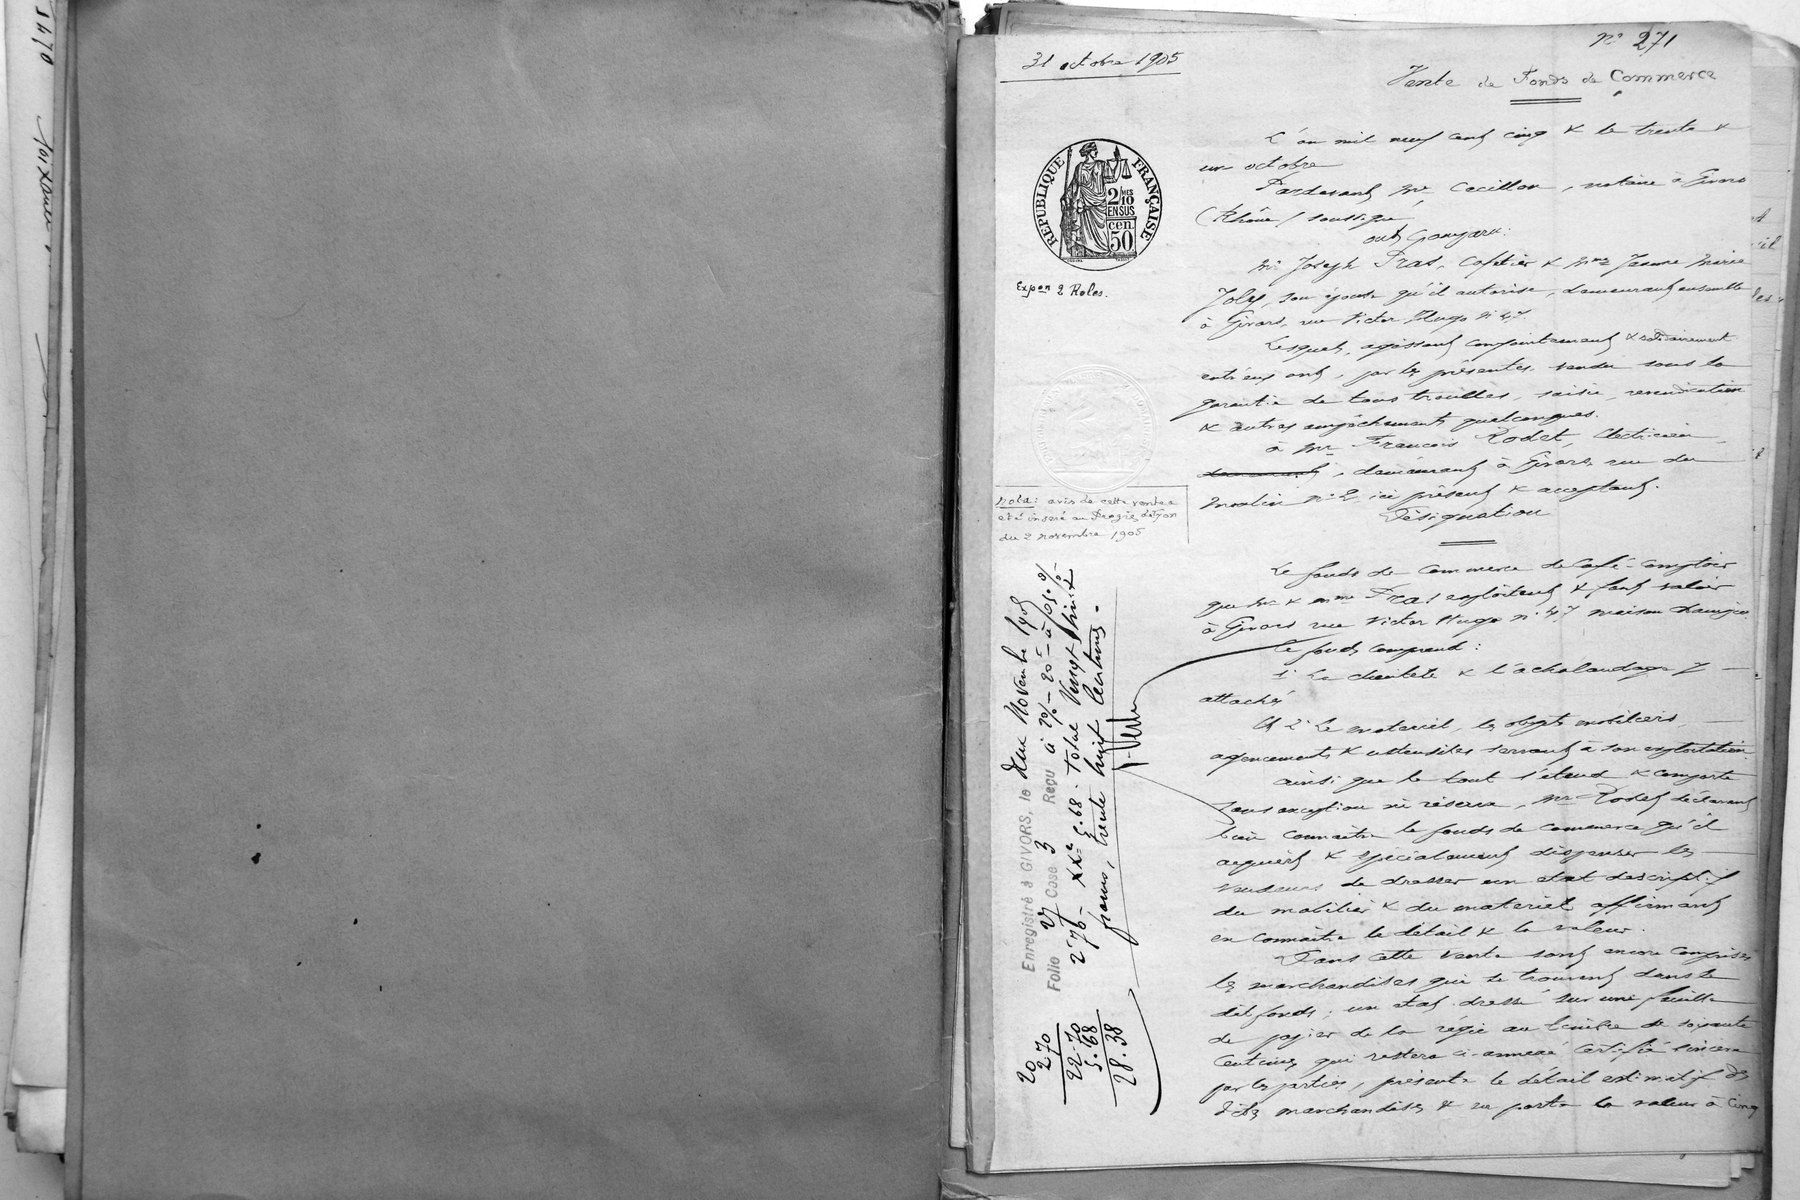 N° 271
31 octobre 1905
Vente de Fonds de Commerce
L'an mil neuf cent cinq & le trente &
un octobre
Pardevant Me Cecillon, notaire à Givors
(Rhône) soussigné
ont comparu:
Mr Joseph Pras, Cafetier & Mme Jeanne Marie
Joly, son épouse qu'il autorise, demeurant ensemble
à Givors, rue Victor Hugo n° 47.
Lesquels, agissant conjointement & solidairement
entr'eux ont, par les présentes, vendu sous la
garantie de tous troubles, saisie, revendication
& autres empêchements quelconques.
à Mr François Rodet, électricien
demeurant, demeurant à Givors rue du
Moulin n° 2 ici présent & acceptant.
Désignation
Le fonds de commerce de Café-comptoir
que Mr & Mme Pras exploitent & font valoir
à Givors rue Victor Hugo n° 47 maison
Ce fonds comprend:
1° La clientèle & l'achalandage y
attachés
Et 2° Le matériel, les objets mobiliers,
agencements & ustensiles servant à son exploitation
ainsi que le tout s'étend & comporte
sans exception ni réserve, Mr Rodet déclarant
bien connaître le fonds de commerce qu'il
acquiert & spécialement dispenser les
vendeurs de dresser un état descriptif
du mobilier & du matériel affirmant
en connaître le détail & la valeur.
Dans cette vente sont encore comprises
les marchandises qui se trouvent dans le
dit fonds; un état dressé sur une feuille
de papier de la régie au timbre de soixante
centimes qui restera ci-annexé certifié sincère
par les parties, présente le détail estimatif des
dites marchandises & en porte la valeur à cinq
RÉPUBLIQUE FRANÇAISE
2/10 MES
EN SUS
cen.
50
Expon 2 Roles.
Nota: avis de cette vente a
été inséré au Progrès de Lyon
du 2 novembre 1905
Enregistré à GIVORS, le deux Novembre 1905
Folio 27 Case 3 Reçu à 2% - 20f - à 0.50%
2f,70 - XXes 5.68 - Total Vingt huit
francs, trente huit centimes.
20
2 70
22.70
5.68
28.38